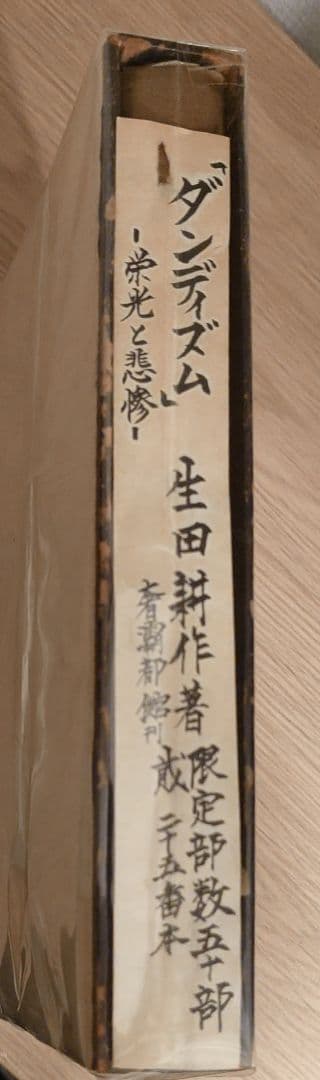 「ダンディズム」
-栄光と悲惨-
生田耕作著
奢灞都館刊
限定部数五十部
二十五番本